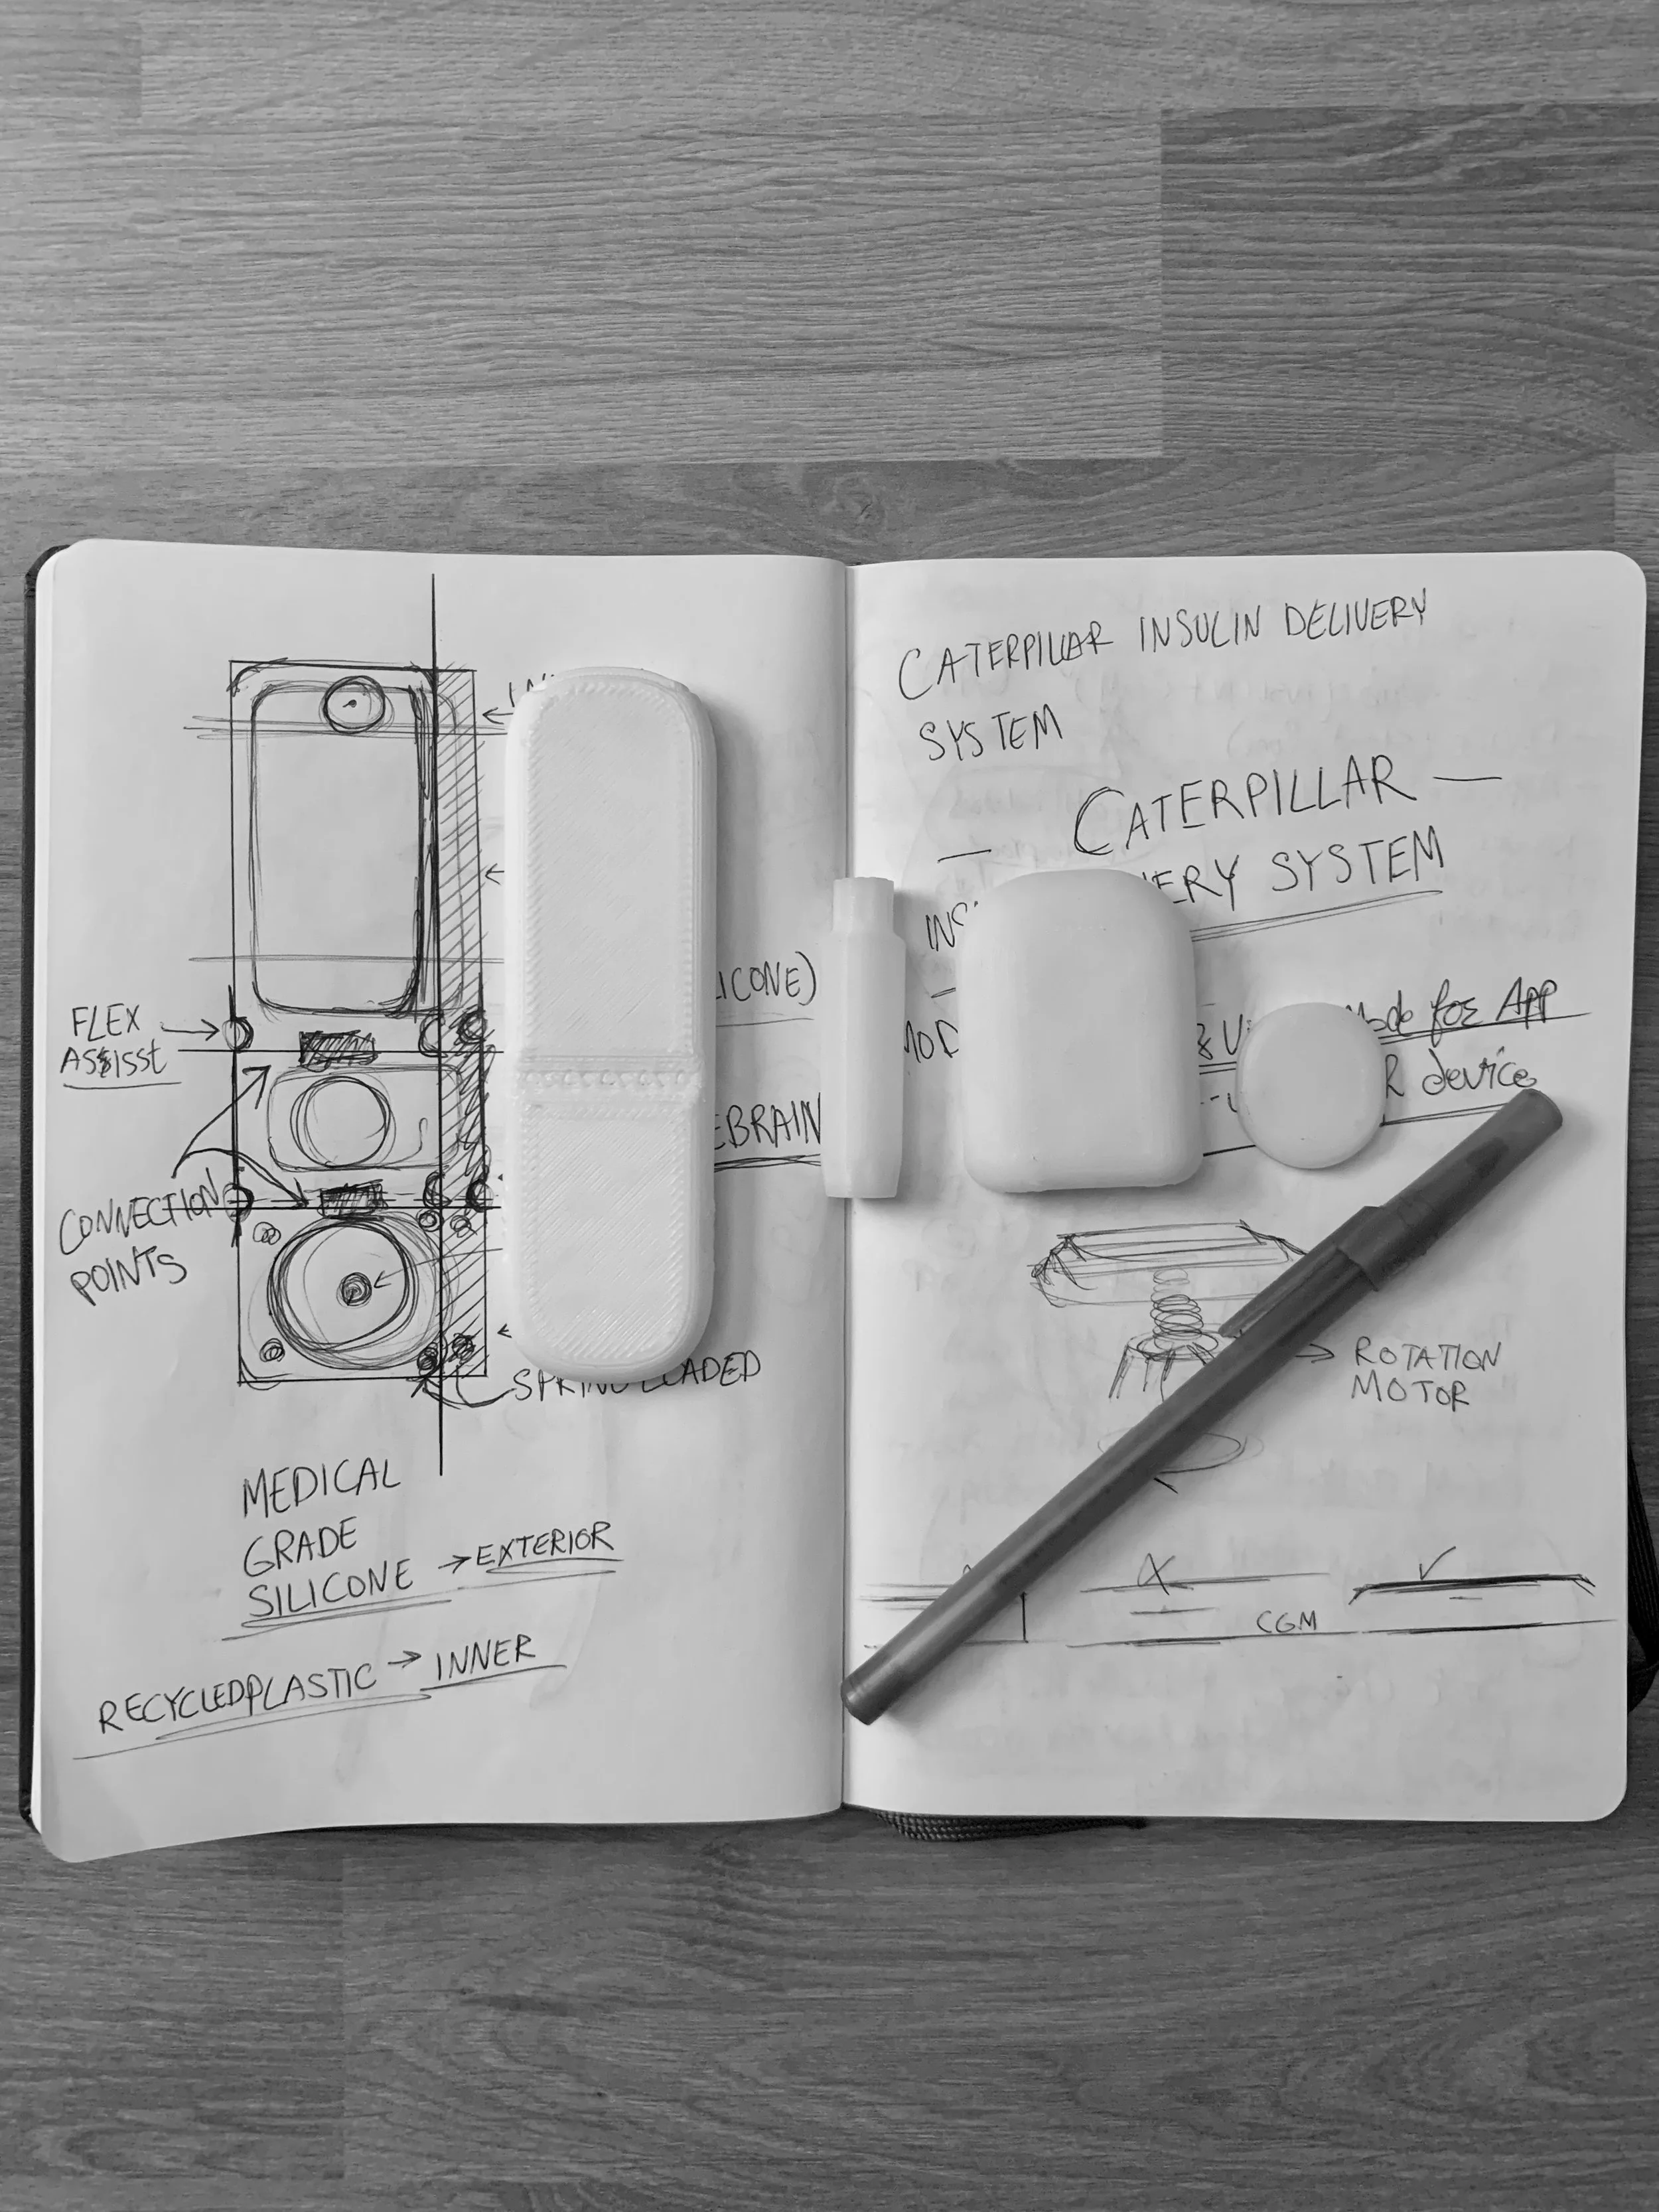 FLEX
ASSISST
CONNECTION
POINTS
ICONE)
EBRAIN
LOADED
MEDICAL
GRADE
SILICONE → EXTERIOR
RECYCLEDPLASTIC → INNER
CATERPILLAR INSULIN DELIVERY
SYSTEM
— CATERPILLAR —
ERY SYSTEM
INS
MOD
& U
Mode for App
R device
→ ROTATION
MOTOR
X ✓
CGM